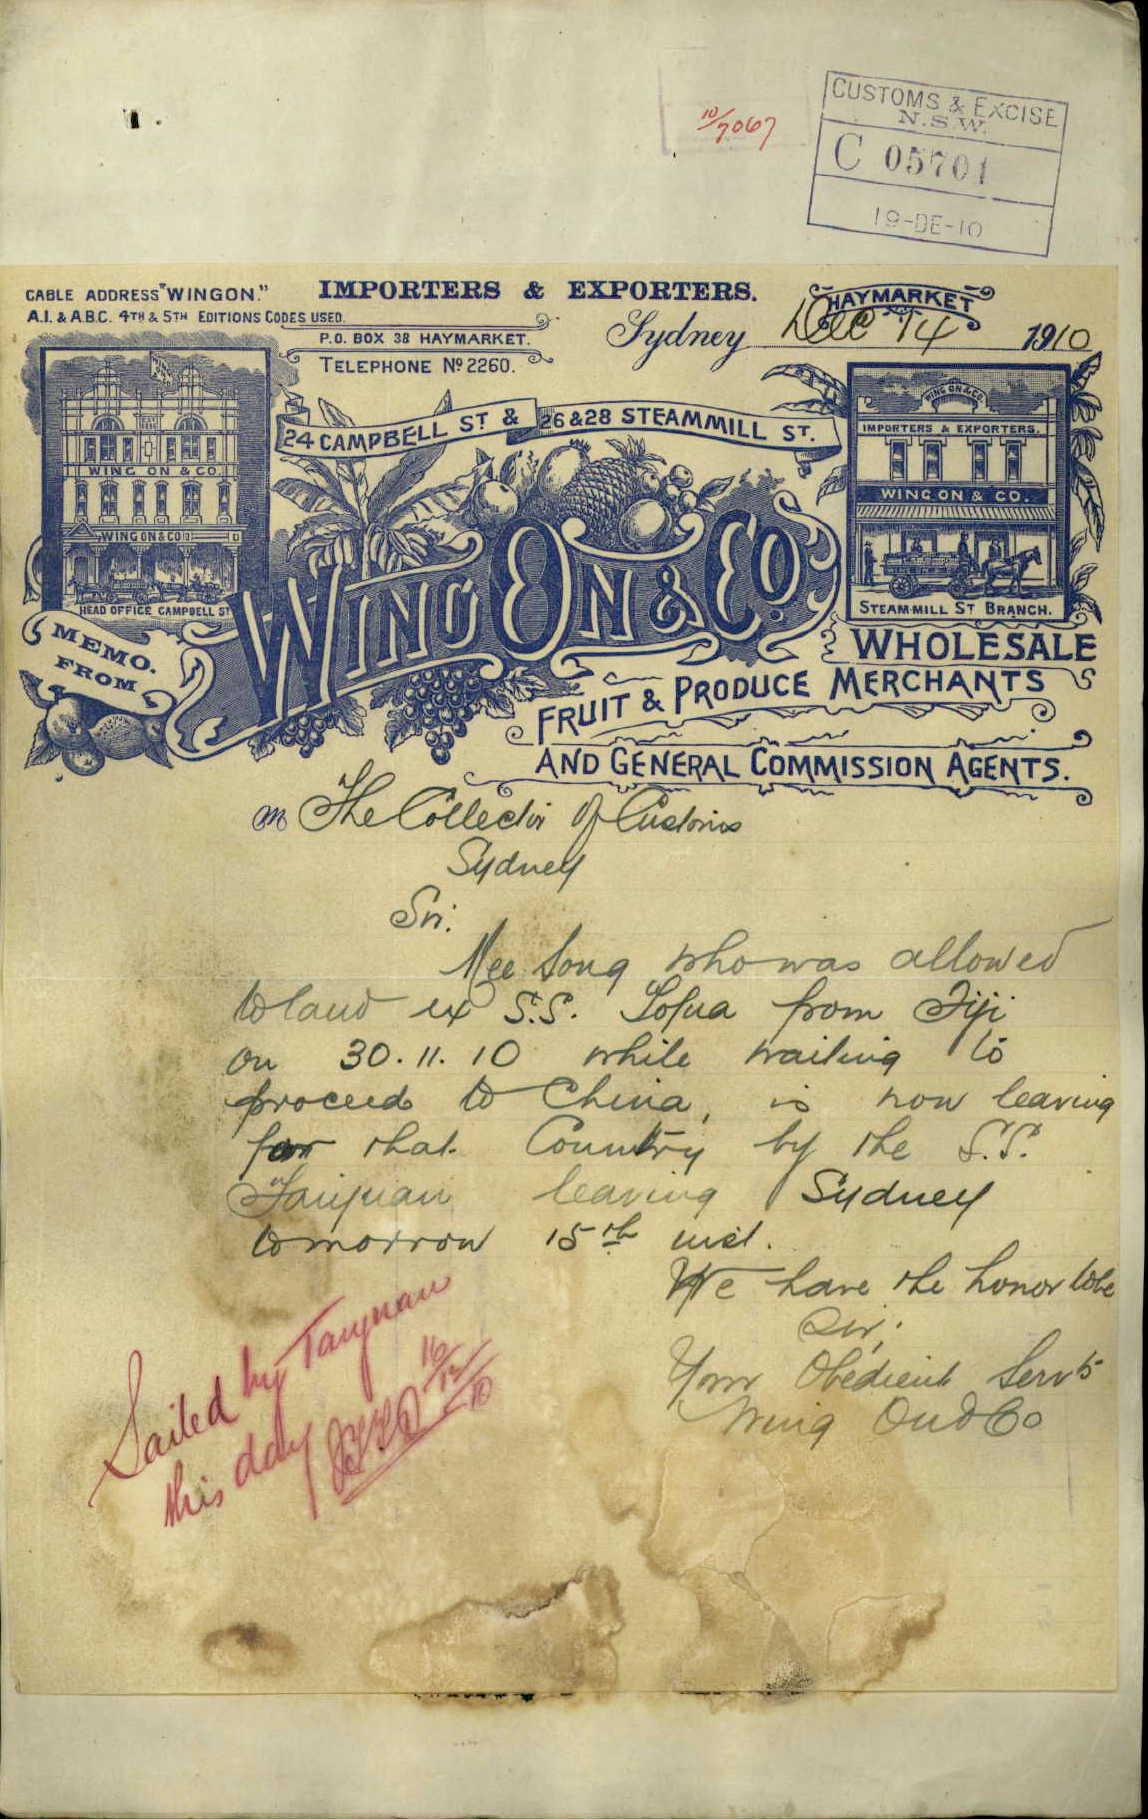 10/7067
CUSTOMS & EXCISE
N.S.W.
C 05701
19-DE-10
CABLE ADDRESS "WINGON."
A.I. & A.B.C. 4TH & 5TH EDITIONS CODES USED.
IMPORTERS & EXPORTERS.
P.O. BOX 38 HAYMARKET.
TELEPHONE No 2260.
HAYMARKET
Sydney Dec 14 1910
24 CAMPBELL ST & 26 & 28 STEAMMILL ST.
WING ON & CO.
WING ON & CO
HEAD OFFICE CAMPBELL ST
WING ON & CO.
IMPORTERS & EXPORTERS.
WING ON & CO.
STEAM-MILL ST BRANCH.
MEMO.
FROM
WING ON & CO.
WHOLESALE
FRUIT & PRODUCE MERCHANTS
AND GENERAL COMMISSION AGENTS.
M The Collector of Customs
Sydney
Sir:
Mee Song who was allowed
to land ex S.S. Tofua from Fiji
on 30.11.10 while waiting to
proceed to China, is now leaving
for that Country by the S.S.
Taiyuan leaving Sydney
tomorrow 15th inst.
We have the honor to be
Sir;
Your Obedient Servts
Wing On & Co
Sailed by Taiyuan
this day
16/12/10